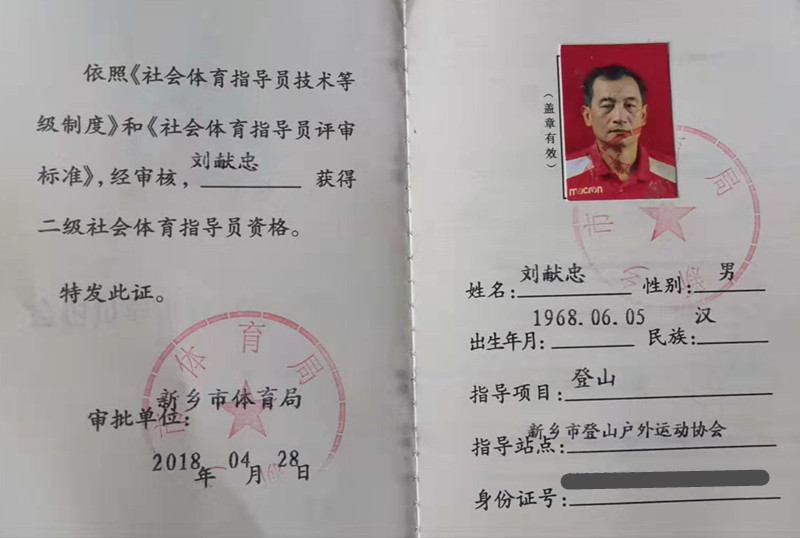 依照《社会体育指导员技术等
级制度》和《社会体育指导员评审
标准》，经审核，刘献忠 获得
二级社会体育指导员资格。
特发此证。
体育局
审批单位：新乡市体育局
2018年 04月 28日
（盖章有效）
macron
市 局
姓名：刘献忠 性别：男
出生年月：1968.06.05 民族：汉
指导项目：登山
指导站点：新乡市登山户外运动协会
身份证号：